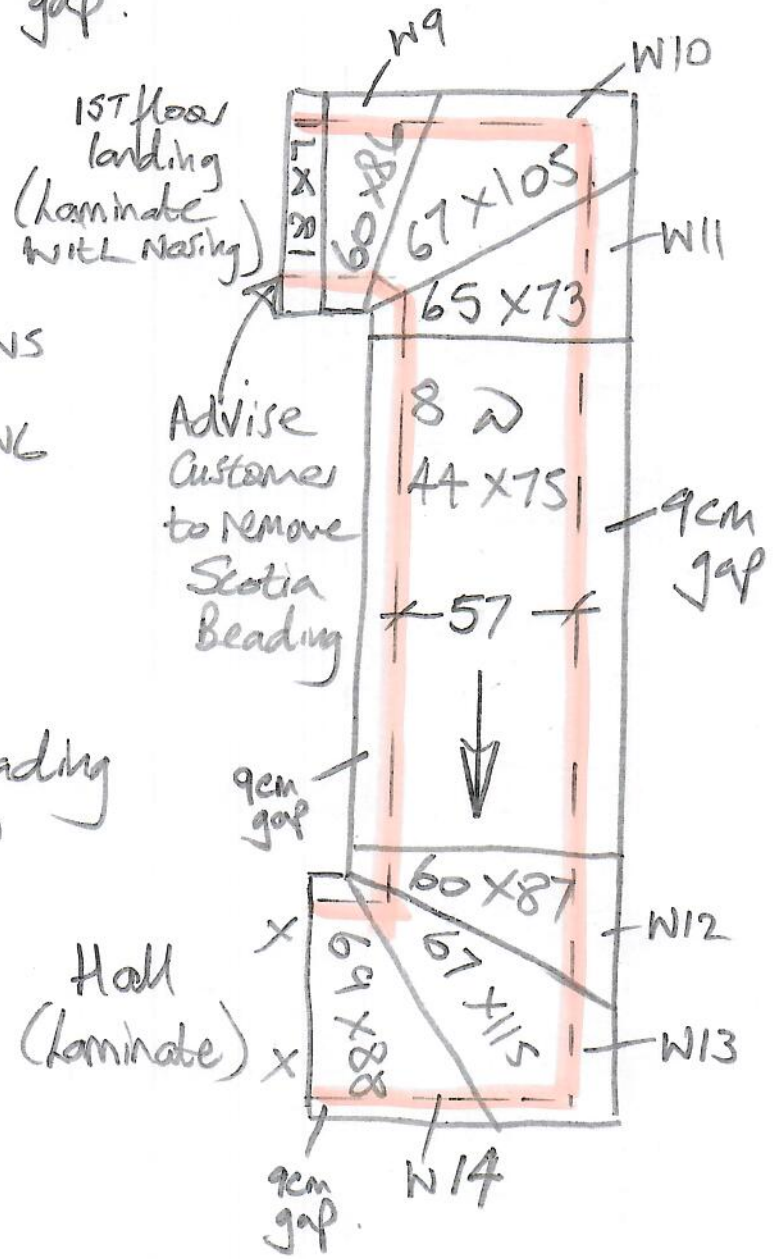 gap.
W9
W10
1ST floor
landing
(Laminate
with Nosing)
60 X 86
67 X 105
W11
65 X 73
NS
Advise
Customer
to remove
Scotia
Beading
8 @
44 X 75
9cm
gap
57
ading
9cm
gap
60 X 87
W12
Hall
(Laminate)
X
X
69 X 88
67 X 115
W13
9cm
gap.
W14